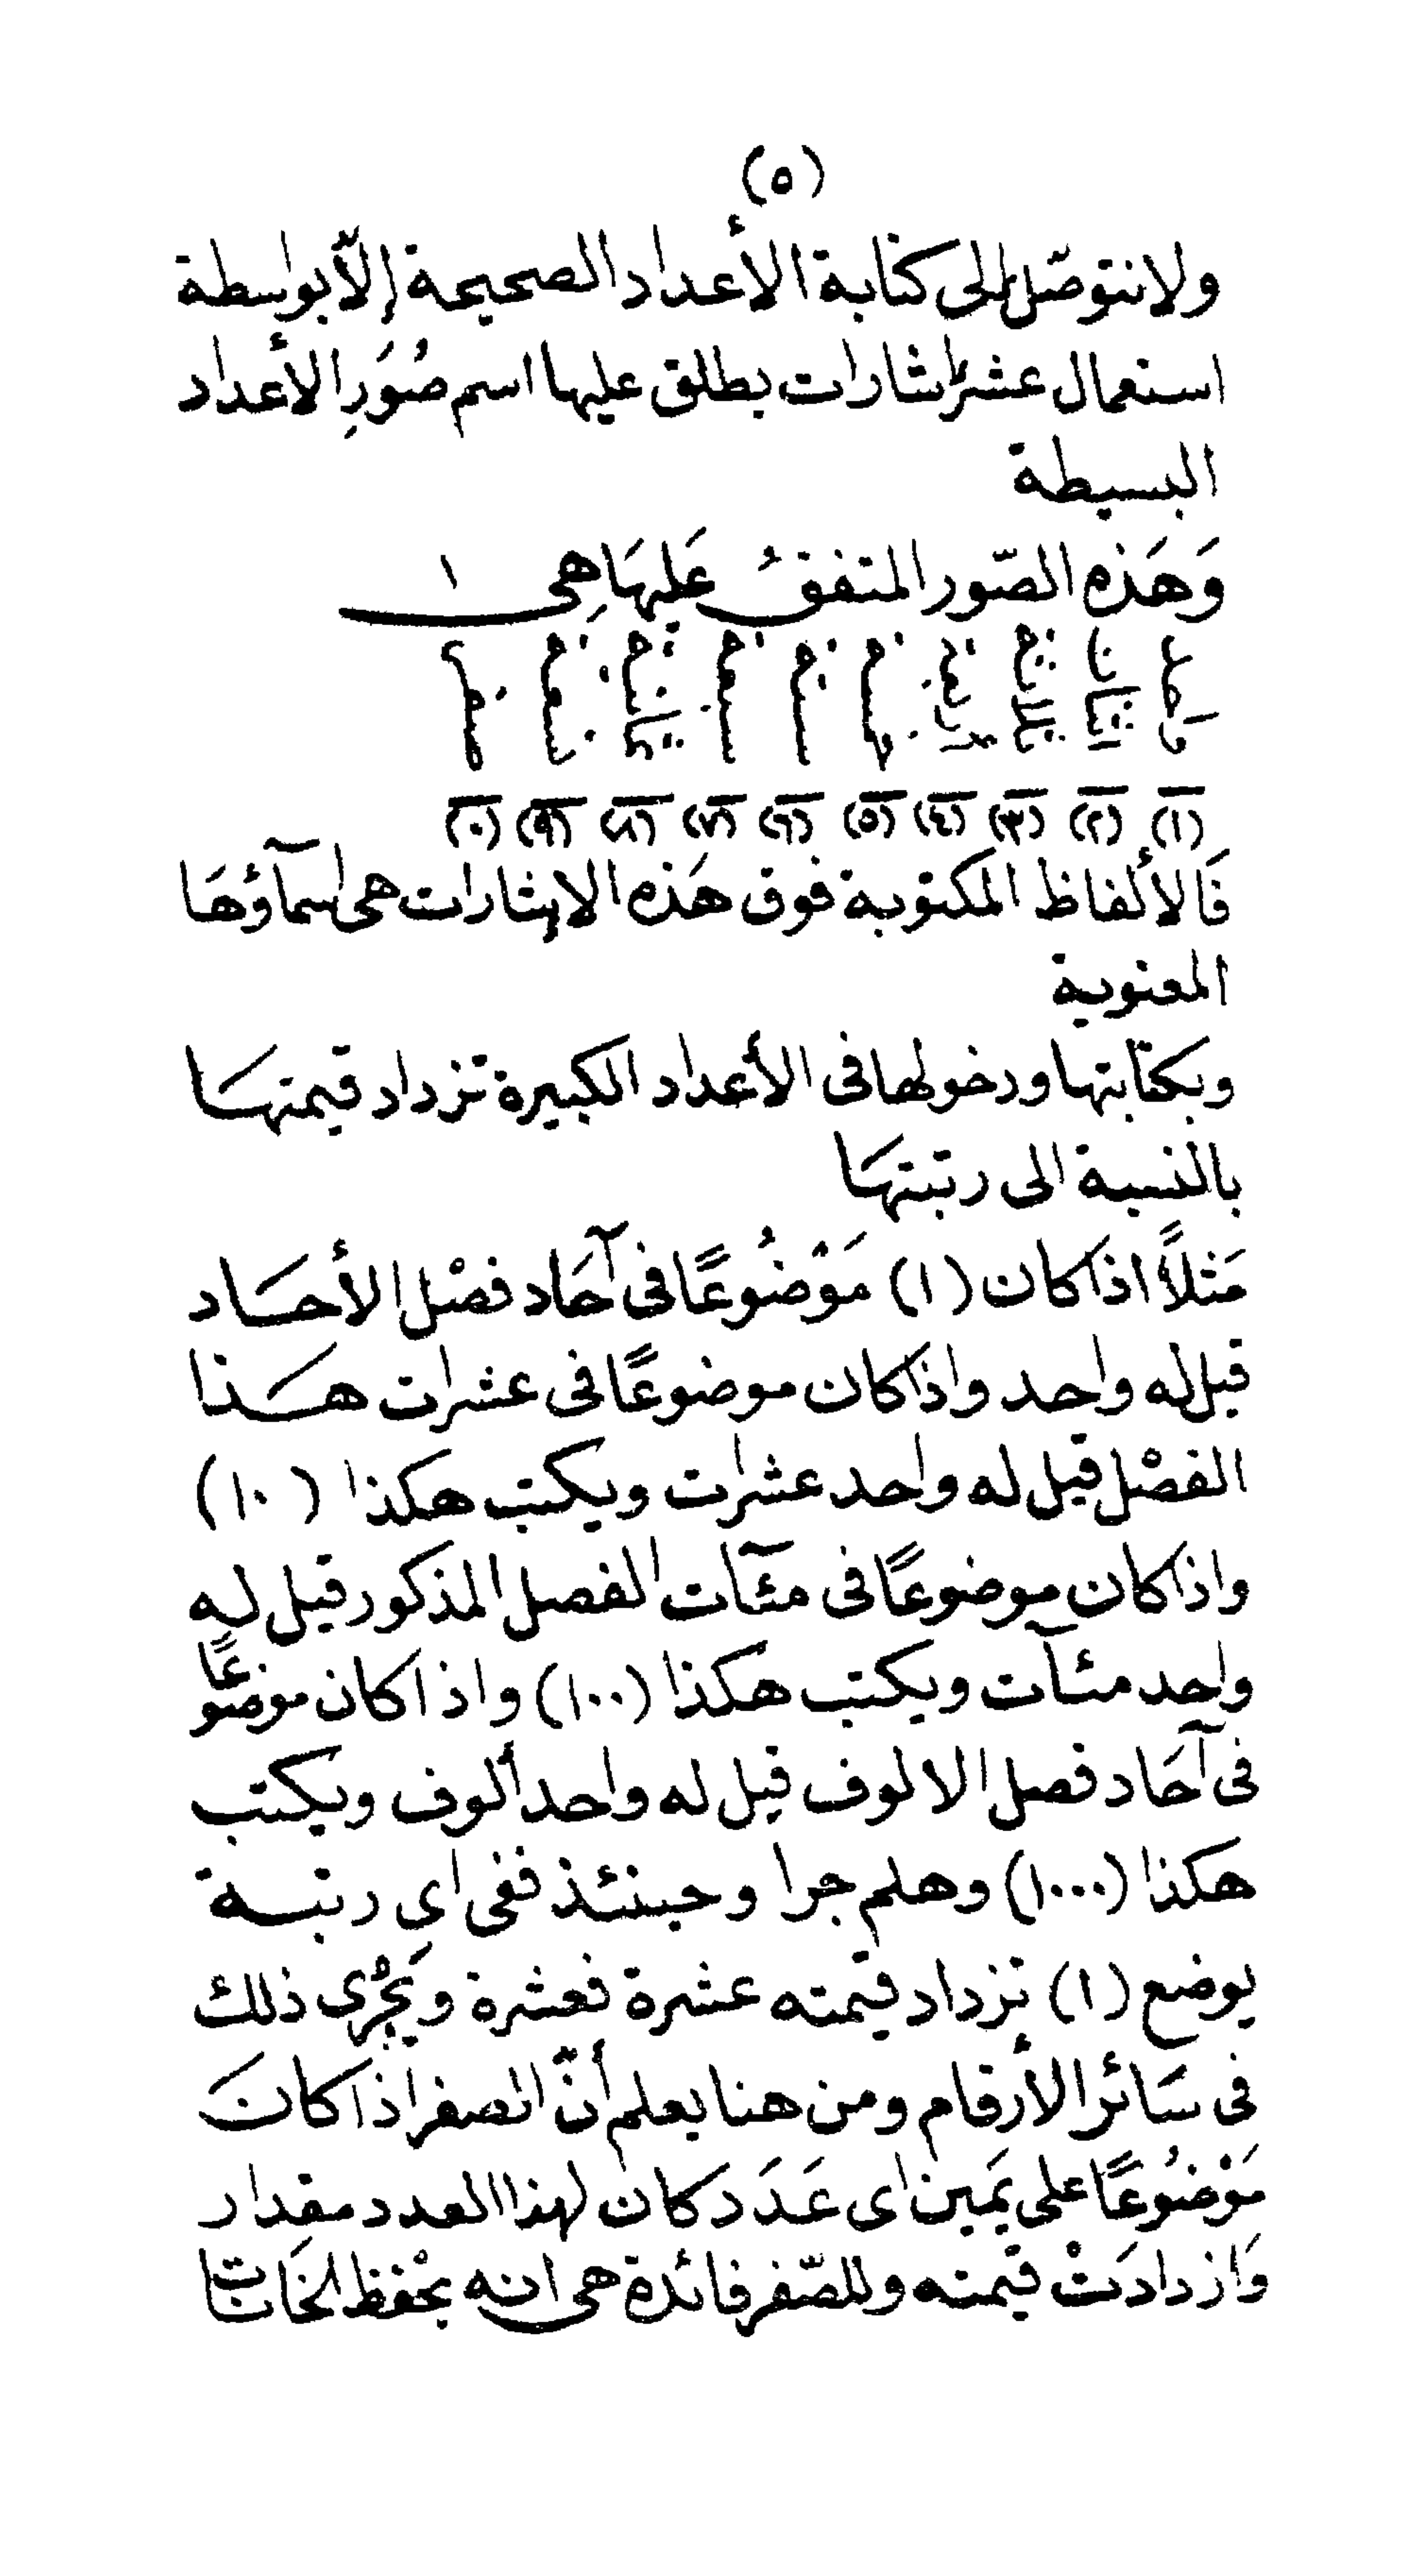 (٥)
ولا نتوصّل إلى كتابة الأعداد الصحيحة إلاّ بواسطة
استعمال عشر إشارات يطلق عليها اسم صُوَرِ الأعداد
البسيطة
وَهَذه الصّور المتفقُ عَليهَا هِى ١
واحد اثنان ثلاثة اربعة خمسة ستة سبعة ثمانية تسعة صفر
(١) (٢) (٣) (٤) (٥) (٦) (٧) (٨) (٩) (٠)
فَالألفاظ المكتوبة فوق هَذه الإشارات هى اسمآؤهَا
المعنوية
وبكتابتها ودخولها فى الأعداد الكبيرة تزداد قيمتهَا
بالنسبة الى رتبتهَا
مَثلاً اذا كان (١) مَوْضُوعًا فى آحَاد فصْل الأحَاد
قيل له واحد واذا كان موضوعًا فى عشرات هَذا
الفصْل قيل له واحد عشرات ويكتب هكذا (١٠)
واذا كان موضوعًا فى مئآت الفصل المذكور قيل له
واحد مئآت ويكتب هكذا (١٠٠) واذا كان موضوعًا
فى آحَاد فصل الالوف قيل له واحد ألوف ويكتب
هكذا (١٠٠٠) وهلم جرا وحينئذ ففى اى رتبة
يوضع (١) تزداد قيمته عشرة فعشرة ويَجْرِى ذلك
فى سَائر الأرقام ومن هنا يعلم أنّ الصفر اذا كانَ
مَوْضُوعًا على يَمين اى عَدَد كان لهذا العدد مقدار
وَازدادَتْ قيمته وللصّفر فائدة هى انه يحْفظ الخَانات